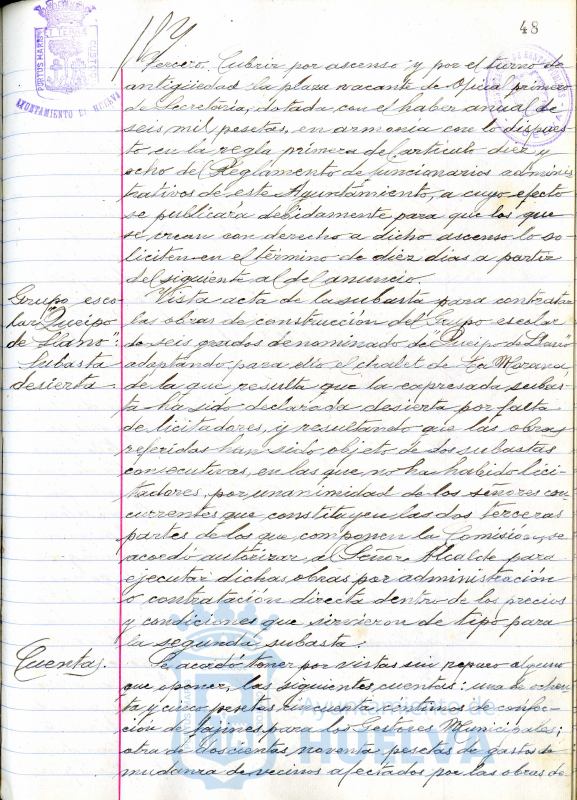 48
PORTUS MARIS ET TERRAE CUSTODIA
AYUNTAMIENTO DE HUELVA
Tercero. Cubrir por ascenso y por el turno de
antigüedad la plaza vacante de Oficial primero
de Secretaría, dotada con el haber anual de
seis mil pesetas, en armonía con lo dispues-
to en la regla primera del artículo diez y
ocho del Reglamento de funcionarios adminis-
trativos de este Ayuntamiento, a cuyo efecto
se publicará debidamente para que los que
se crean con derecho a dicho ascenso lo so-
liciten en el término de diez días a partir
del siguiente al del anuncio.
Grupo esco-
lar "Queipo
de Llano":
Subasta
desierta.
Vista acta de la subasta para contratar
las obras de construcción del Grupo escolar
de seis grados denominado de "Queipo de Llano"
adaptando para ello el chalet de
de la que resulta que la expresada subas-
ta ha sido declarada desierta por falta
de licitadores, y resultando que las obras
referidas han sido objeto de dos subastas
consecutivas, en las que no ha habido lici-
tadores, por unanimidad de los señores con-
currentes que constituyen las dos terceras
partes de los que componen la Comisión, se
acordó autorizar al Señor Alcalde para
ejecutar dichas obras por administración
o contratación directa dentro de los precios
y condiciones que sirvieron de tipo para
la segunda subasta.
Cuentas.
Se acordó tener por vistas sin reparo alguno
que oponer, las siguientes cuentas: una de ochen-
ta y cinco pesetas cincuenta céntimos de confec-
ción de fajines para los Gestores Municipales;
otra de doscientas noventa pesetas de gastos de
mudanza de vecinos afectados por las obras de
Ayuntamiento de
HUELVA